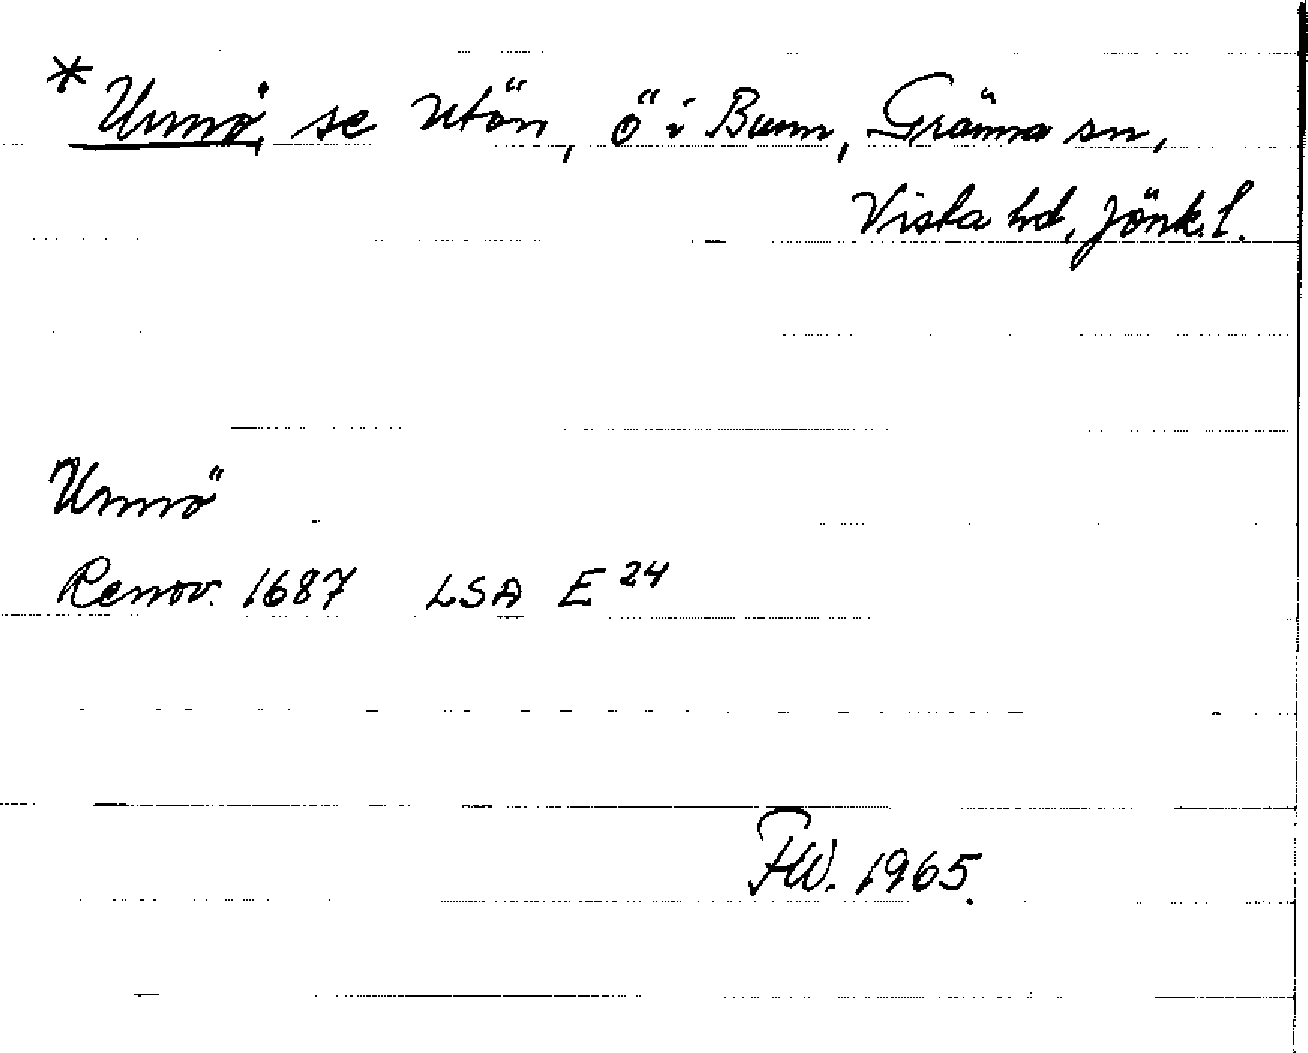 *Urmö, se Utön, ö i Bunn, Gränna sn,
Vista hd, Jönk. l.
Urmö
Renov. 1687 LSA E 24
FW. 1965.